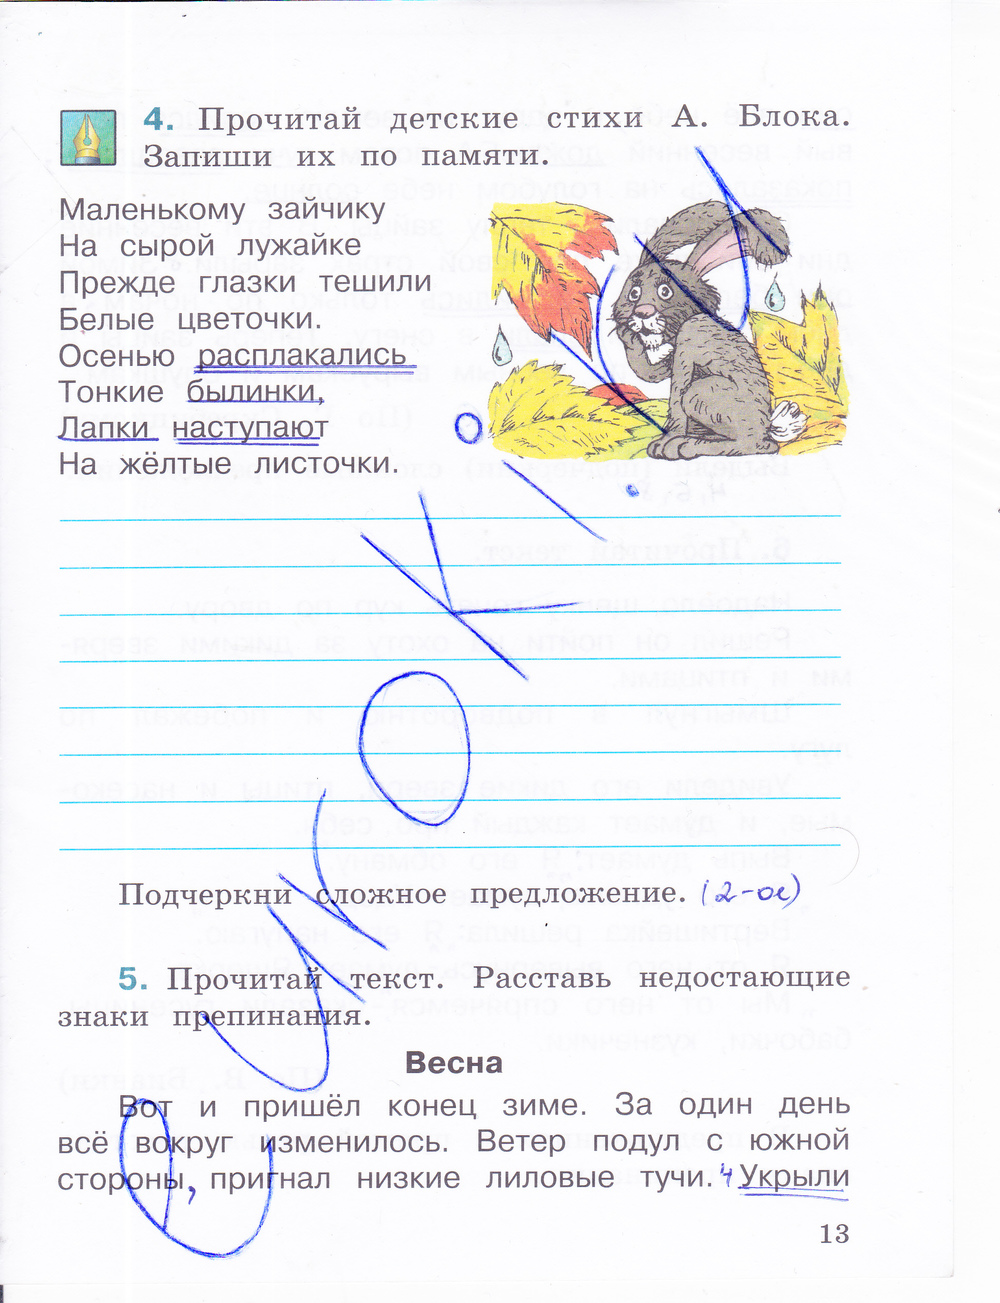 4. Прочитай детские стихи А. Блока.
Запиши их по памяти.
Маленькому зайчику
На сырой лужайке
Прежде глазки тешили
Белые цветочки.
Осенью расплакались
Тонкие былинки,
Лапки наступают
На жёлтые листочки.
Подчеркни сложное предложение. (2-ое)
5. Прочитай текст. Расставь недостающие
знаки препинания.
Весна
Вот и пришёл конец зиме. За один день
всё вокруг изменилось. Ветер подул с южной
стороны, пригнал низкие лиловые тучи. 4 Укрыли
13